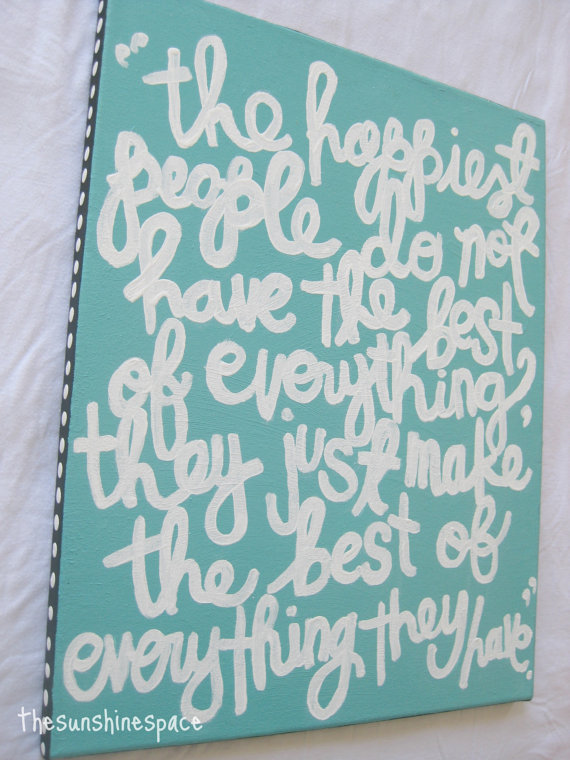 “the happiest
people do not
have the best
of everything,
they just make
the best of
everything they have.”
thesunshinespace